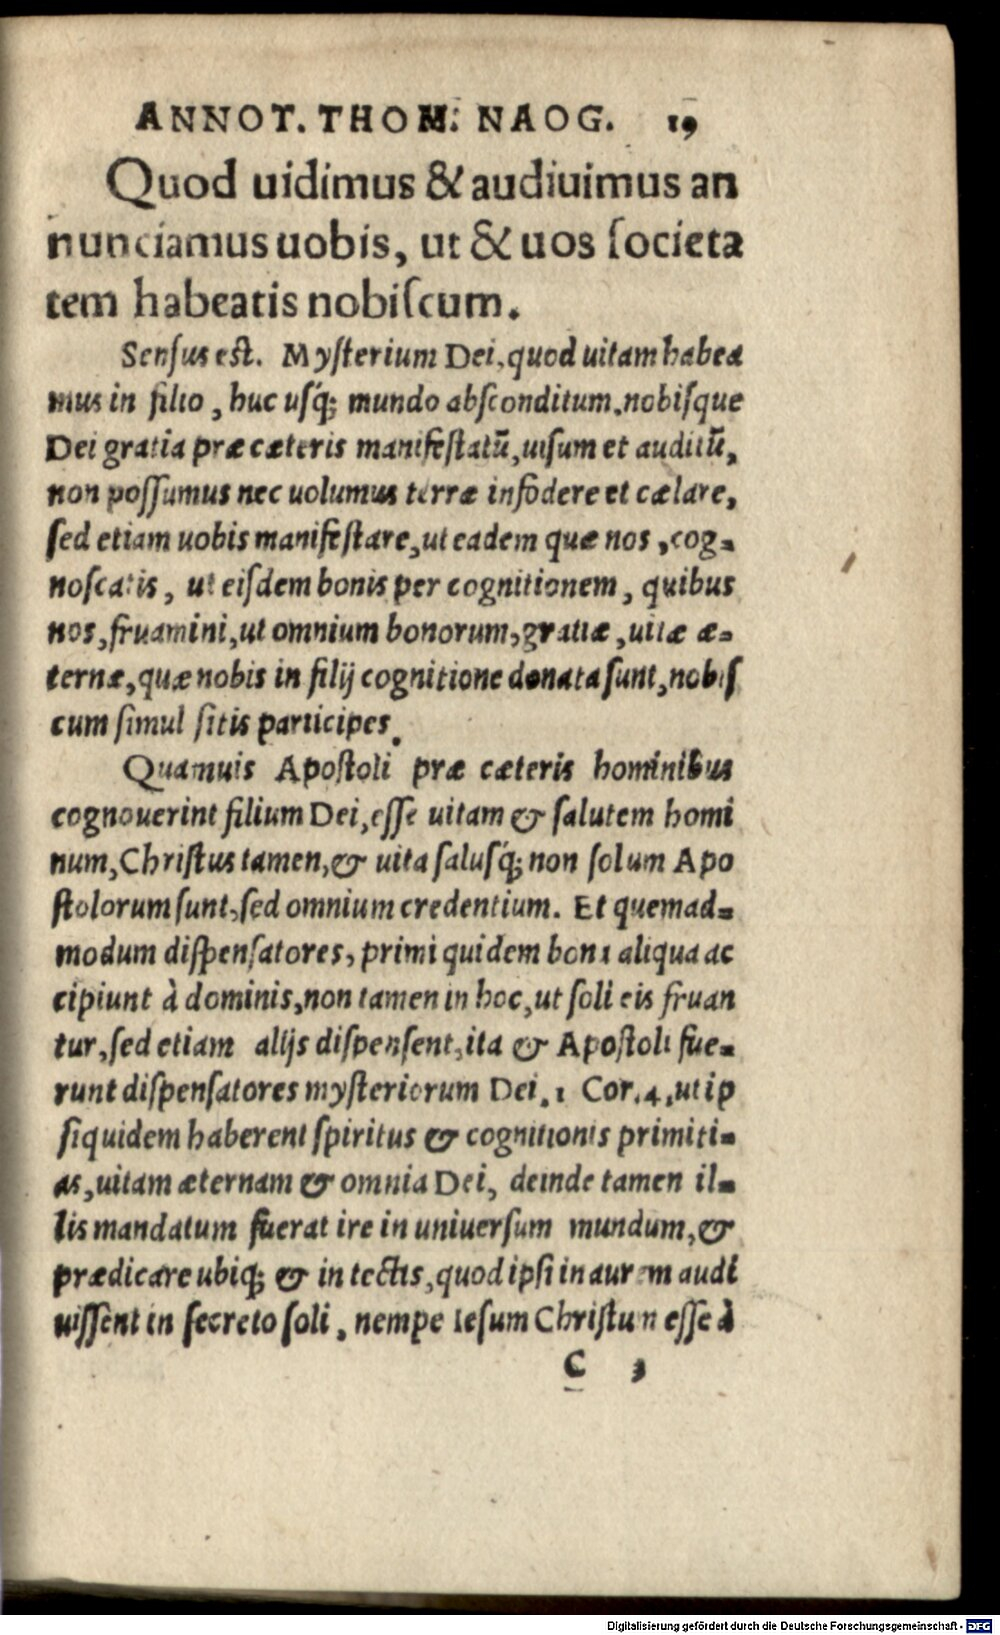 ANNOT. THOM. NAOG. 19
Quod uidimus & audiuimus an
nunciamus uobis, ut & uos ſocieta
tem habeatis nobiſcum.
Senſus eſt. Myſterium Dei, quod uitam habea
mus in filio, huc uſq́; mundo abſconditum, nobiſque
Dei gratia præ cæteris manifeſtatũ, uiſum et auditũ,
non poſſumus nec uolumus terræ infodere et cælare,
ſed etiam uobis manifeſtare, ut eadem quæ nos, cog⸗
noſcatis, ut eiſdem bonis per cognitionem, quibus
nos, fruamini, ut omnium bonorum, gratiæ, uitæ æ⸗
ternæ, quæ nobis in filij cognitione donata ſunt, nobiſ
cum ſimul ſitis participes.
Quamuis Apoſtoli præ cæteris hominibus
cognouerint filium Dei, eſſe uitam & ſalutem homi
num, Chriſtus tamen, & uita ſaluſq́; non ſolum Apo
ſtolorum ſunt, ſed omnium credentium. Et quemad⸗
modum diſpenſatores, primi quidem bona aliqua ac
cipiunt à dominis, non tamen in hoc, ut ſoli eis fruan
tur, ſed etiam alijs diſpenſent, ita & Apoſtoli fue⸗
runt diſpenſatores myſteriorum Dei. 1 Cor. 4, ut ip
ſi quidem haberent ſpiritus & cognitionis primiti⸗
as, uitam æternam & omnia Dei, deinde tamen il⸗
lis mandatum fuerat ire in uniuerſum mundum, &
prædicare ubiq; & in tectis, quod ipſi in aurem audi
uiſſent in ſecreto ſoli, nempe Ieſum Chriſtum eſſe à
C 3
Digitalisierung gefördert durch die Deutsche Forschungsgemeinschaft - DFG